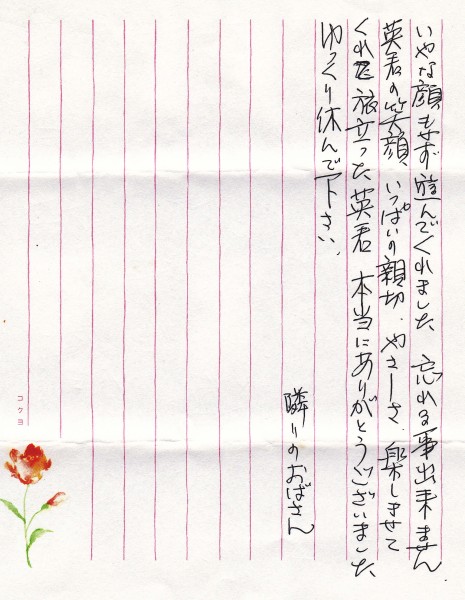 いやな顔もせず遊んでくれました 忘れる事出来ません
英君の笑顔 いっぱいの親切、やさしさ、楽しませて
くれた旅立った英君 本当にありがとうございました
ゆっくり休んで下さい、
隣りのおばさん
コクヨ